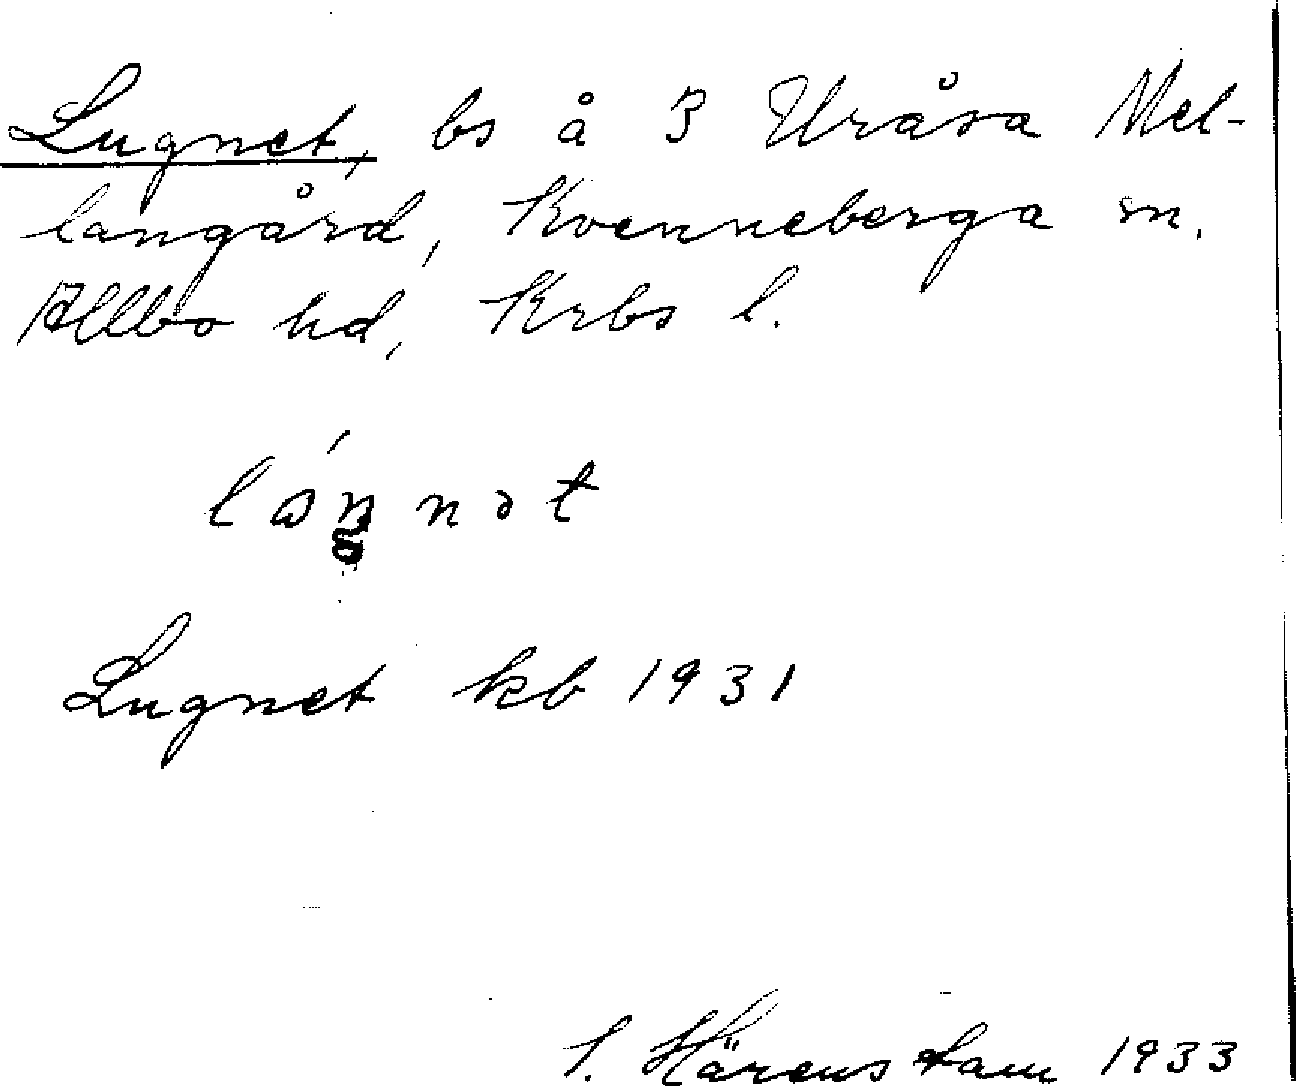 Lugnet, bs å 3 Uråsa Mel-
langård, Kvenneberga sn.
Allbo hd, Krbs l.
Lugnet kb 1931
S. Härenstam 1933